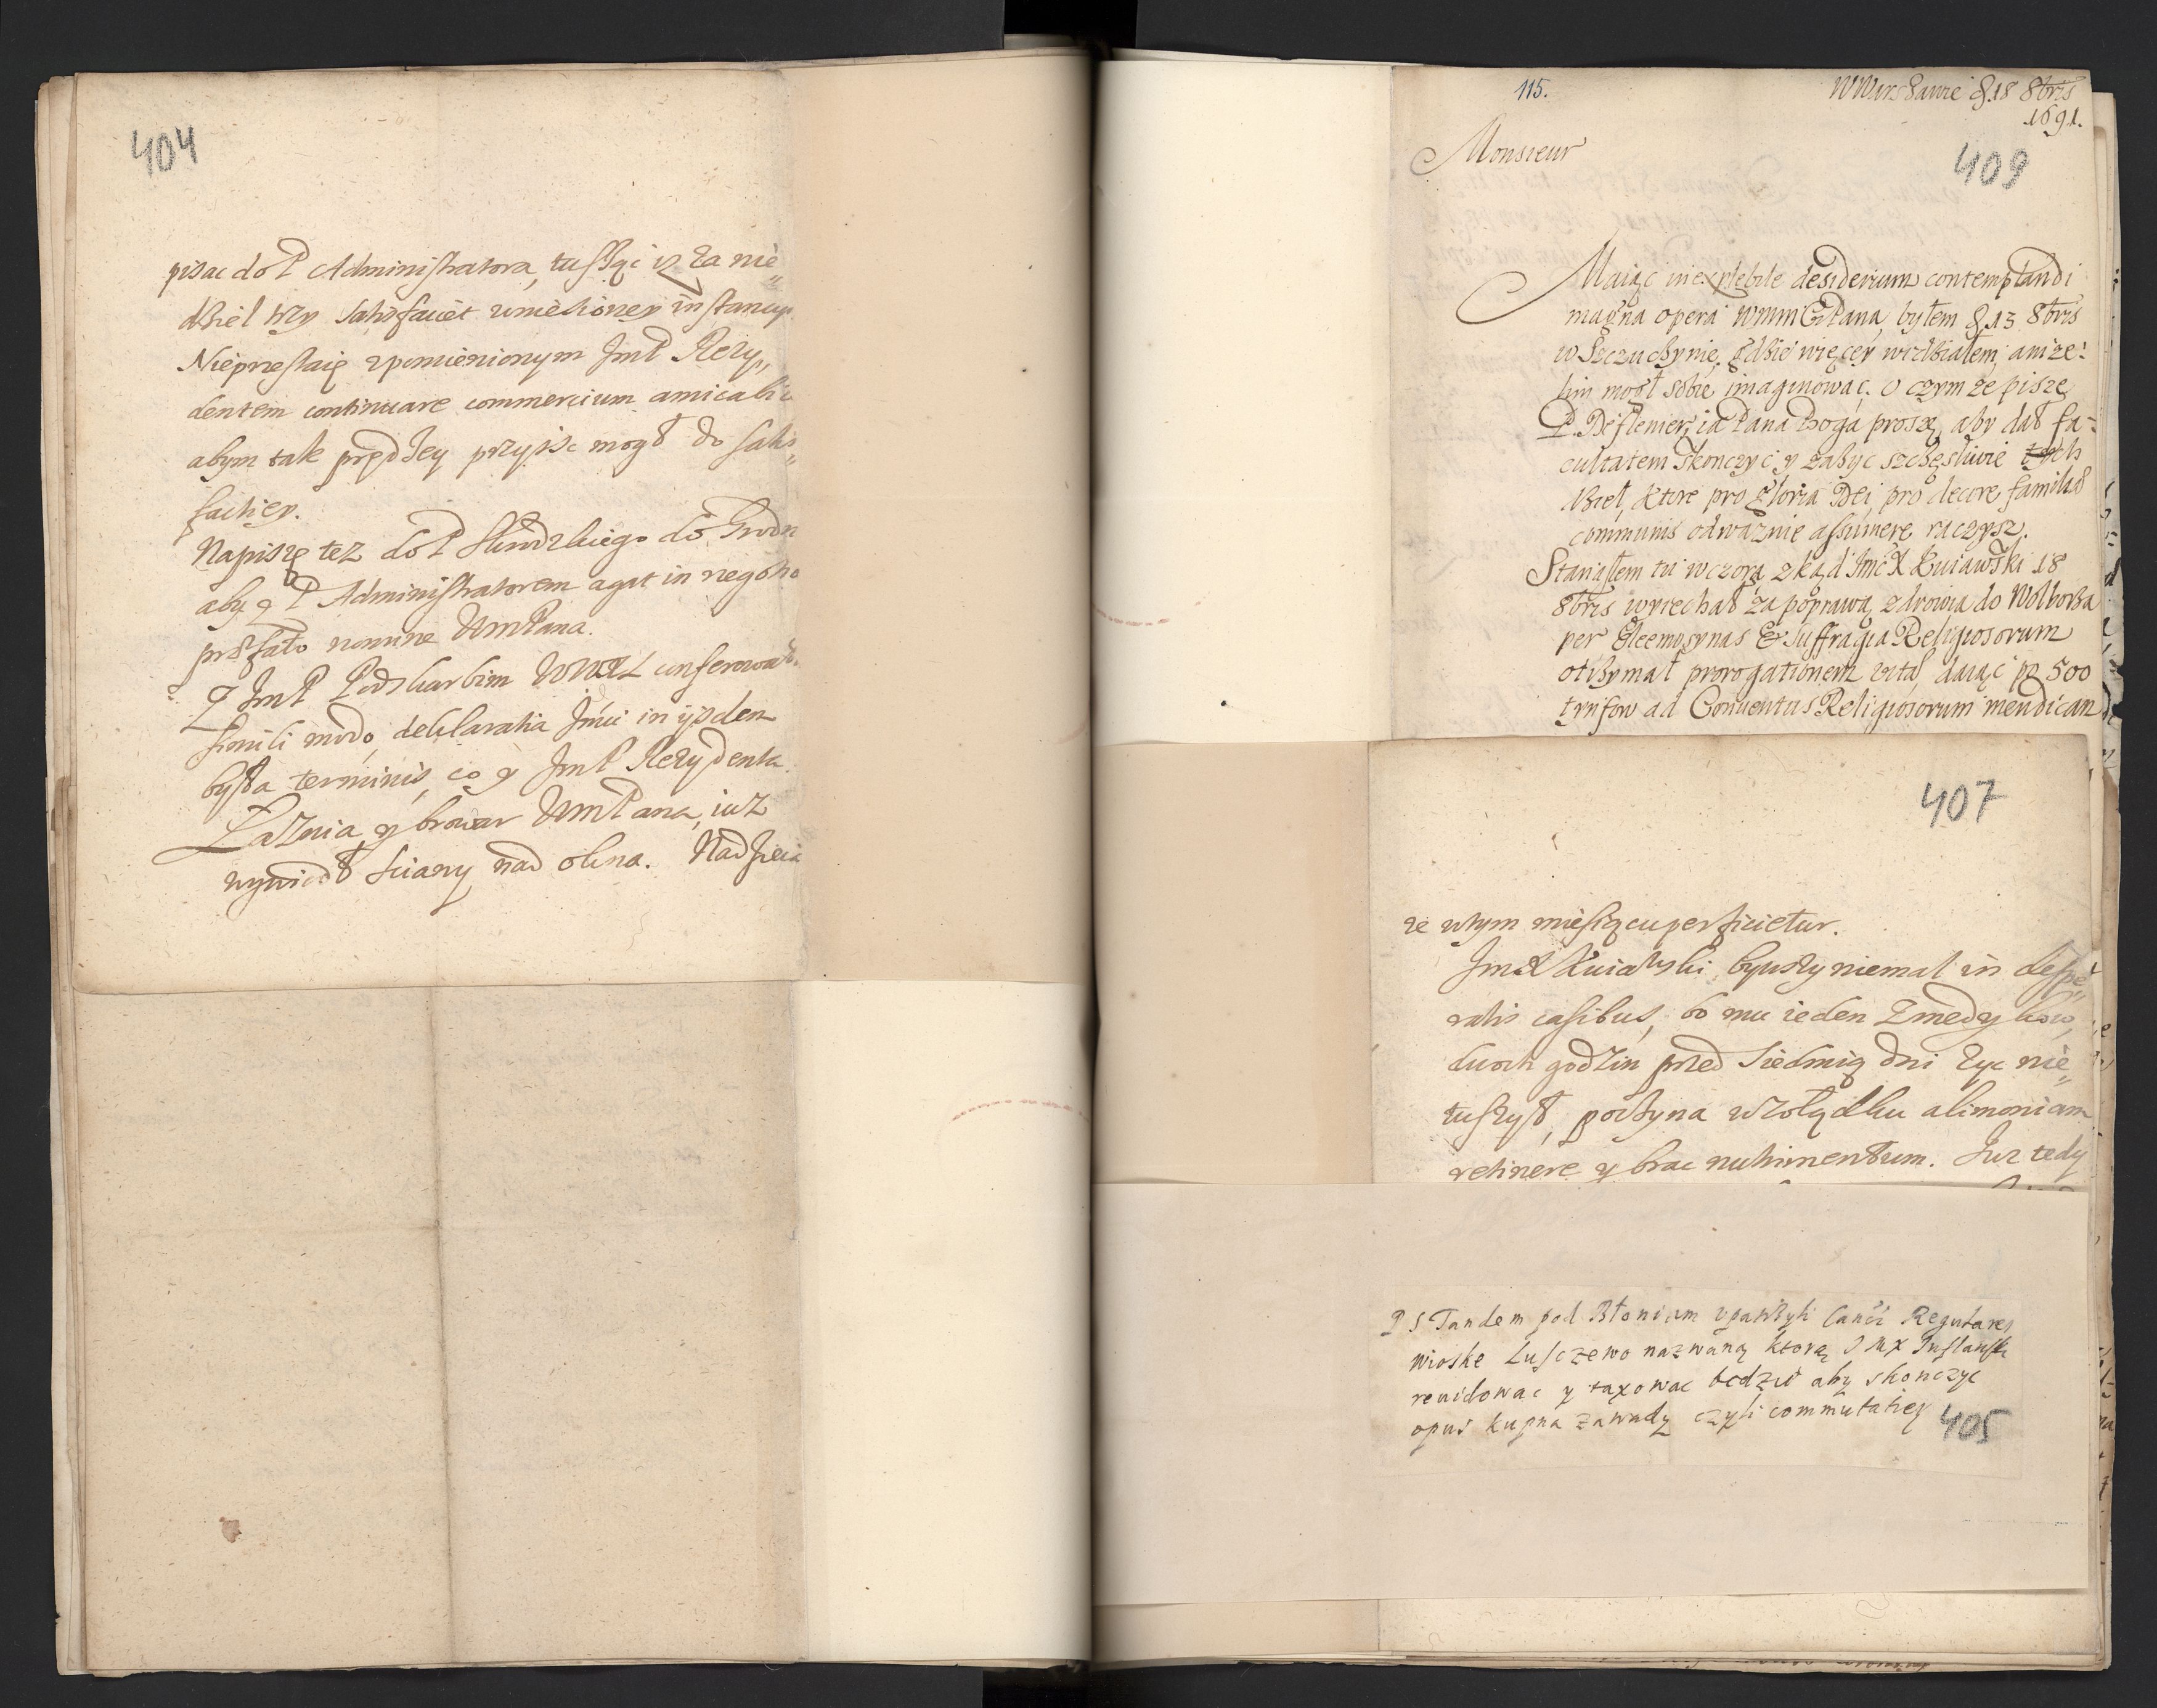 404
pisac do P Administratora, tusząc iz za nie„
dziel trzy satisfaciet uniesioney instancyi
Nieprzestaię zpomienionym JmP Rezy„
dentem continuare commercium amicabile
abym tak prędzey przyisc mogł do satis„
factiey.
Napiszę tez do P do Grodn
aby z P Administratorem agat in negotio
præfato nomine WmPana.
Z JmP Podskarbim WWXL conferowa
simili modo, declaratia Jmci in iisdem
była terminis, co y JmP Rezydenta.
Łaznia y browar WmPana, iuz
wywiodł sciany nad okna. Nadzieia
115.
WWarszawie d. 18 8bris
1691.
409
Monsieur
Maiąc inexplebile desiderium contemplandi
magna opera WmmCiPana, byłem d. 13 8bris
w Szczuczynie, gdzie więcey widziałem, aniże:
lim mogł sobie imaginowac. O czym ze piszę
P. ia Pana Boga proszę, aby dał fa-
cultatem skonczyc y zażyc szczęsliwie tych
dzieł, ktore pro gloria Dei, pro decore familiæ
communis odwaznie assumere raczysz.
Stanąłem tu wczora, zkąd Jmc X Kuiawski 18
8bris wyiechał za poprawą zdrowia do Wolborza
per Eleemosynas & suffragia Religiosorum
otrzymał prorogationem vitæ, daiąc po 500
tynfow ad Conventus Religiosorum mendican
407
ze wtym miesiącu perficietur.
JmX Kuiawski bywszy niemal in despe„
ratis casibus, bo mu ieden zmedykow,
dwoch godzin przed siedmią dni zyc nie„
tuszył, poczyna wzołądku alimoniam
retinere y brac nutrimentum. Juz tedy
PS Tandem pod Błoniem upatrzyli Canci Regulares
wioske Lusczewo nazwaną ktorą J Mx Inflanski
rewidowac y taxowac bedzie aby skonczyc
opus kupna zawady czyli commutatiey
405